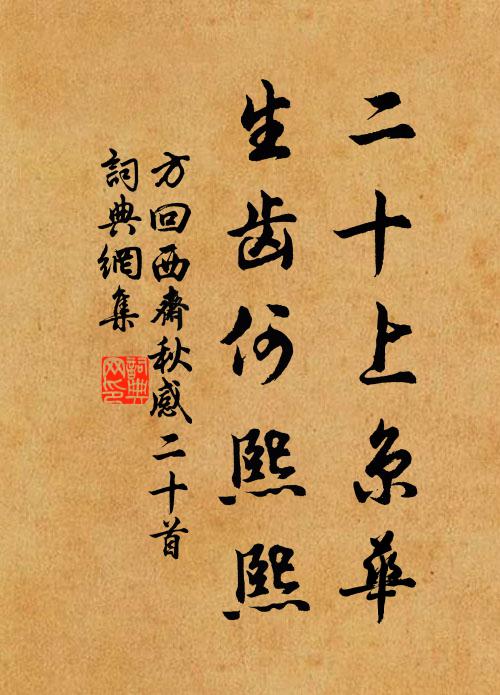 二十上京華
生齿何熙熙
方回西齋秋感二十首
詞典網集
詞典
网印